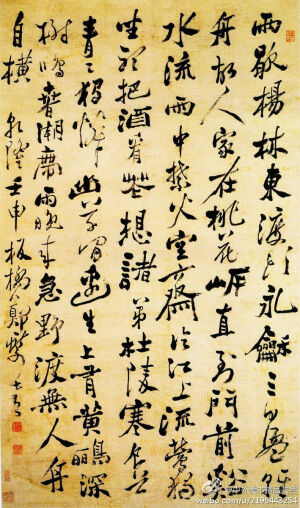 雨歇楊林東渡頭永龢三日盪輕
舟故人家在桃花岸直到門前谿
水流雨中禁火空齋冷江上流鶯獨
坐聽把酒看花想諸弟杜陵寒食草
青〻獨憐幽草澗邊生上有黃鸝深
樹鳴春潮帶雨晚來急野渡無人舟
自橫 乾隆壬申 板橋鄭燮
weibo.com/u/2190443254